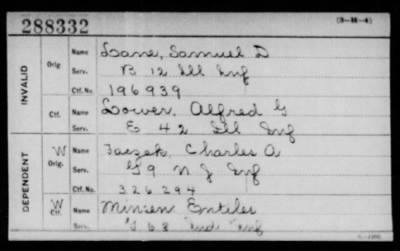 288332
(3-M-4)
INVALID
Orig
Name Lane, Samuel D
Serv. B 12 Ill Inf
Ctf. No. 196939
Ctf.
Name Lower, Alfred G
Serv. E 42 Ill Inf
DEPENDENT
W
Orig.
Name Charles A
Serv. G 9 N J Inf
Ctf. No. 326294
W
Ctf.
Name
Serv. 68 Ind Inf